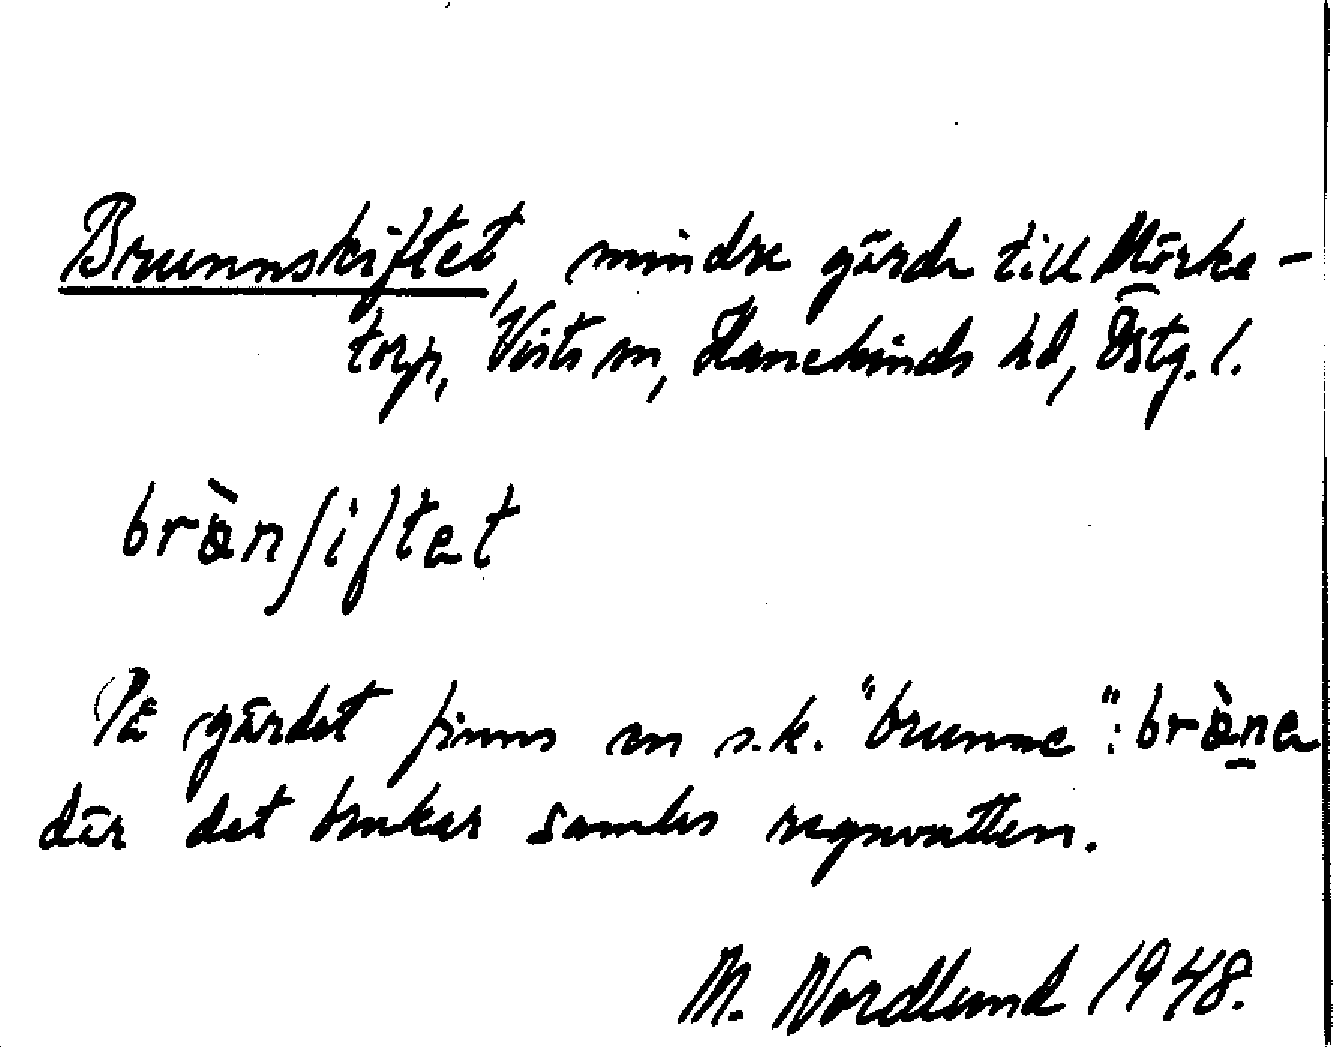 Brunnskiftet, mindre gärde till Mörke-
torp, Vists sn, Hanekinds hd, Östg. l.
brànʃiftet
På gärdet finns en s.k. "brunne": bràne
där det brukar samlas regnvatten.
M. Nordlund 1948.